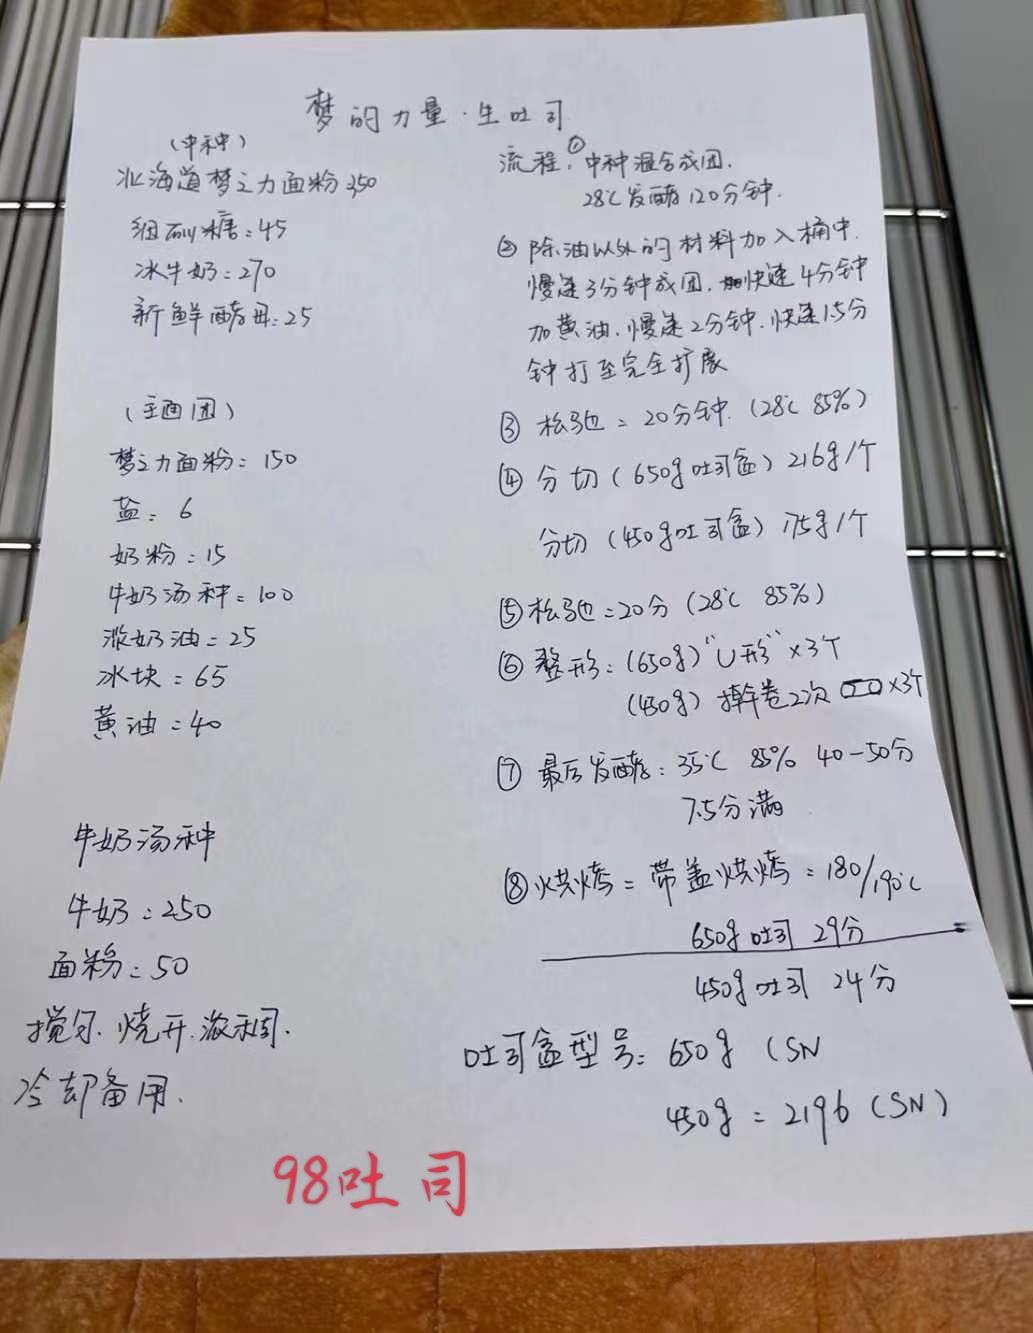 梦的力量·生吐司
(中种)
北海道梦之力面粉350
细砂糖:45
冰牛奶:270
新鲜酵母:25
(主面团)
梦之力面粉:150
盐:6
奶粉:15
牛奶汤种:100
淡奶油:25
冰块:65
黄油:40
牛奶汤种
牛奶:250
面粉:50
搅匀.烧开.浓稠.
冷却备用.
流程:①中种混合成团.
28℃发酵120分钟.
②除油以外的材料加入桶中.
慢速3分钟成团.快速4分钟
加黄油.慢速2分钟.快速1.5分
钟打至完全扩展
③松弛=20分钟.(28℃ 85%)
④分切(650g吐司盒)216g/个
分切(450g吐司盒)175g/个
⑤松弛=20分(28℃ 85%)
⑥整形:(650g)"U形"×3个
(450g)擀卷2次 ×3个
⑦最后发酵:35℃ 85% 40-50分
7.5分满
⑧烘烤=带盖烘烤=180/190℃
650g吐司 29分
450g吐司 24分
吐司盒型号:650g (SN
450g=2196(SN)
98吐司